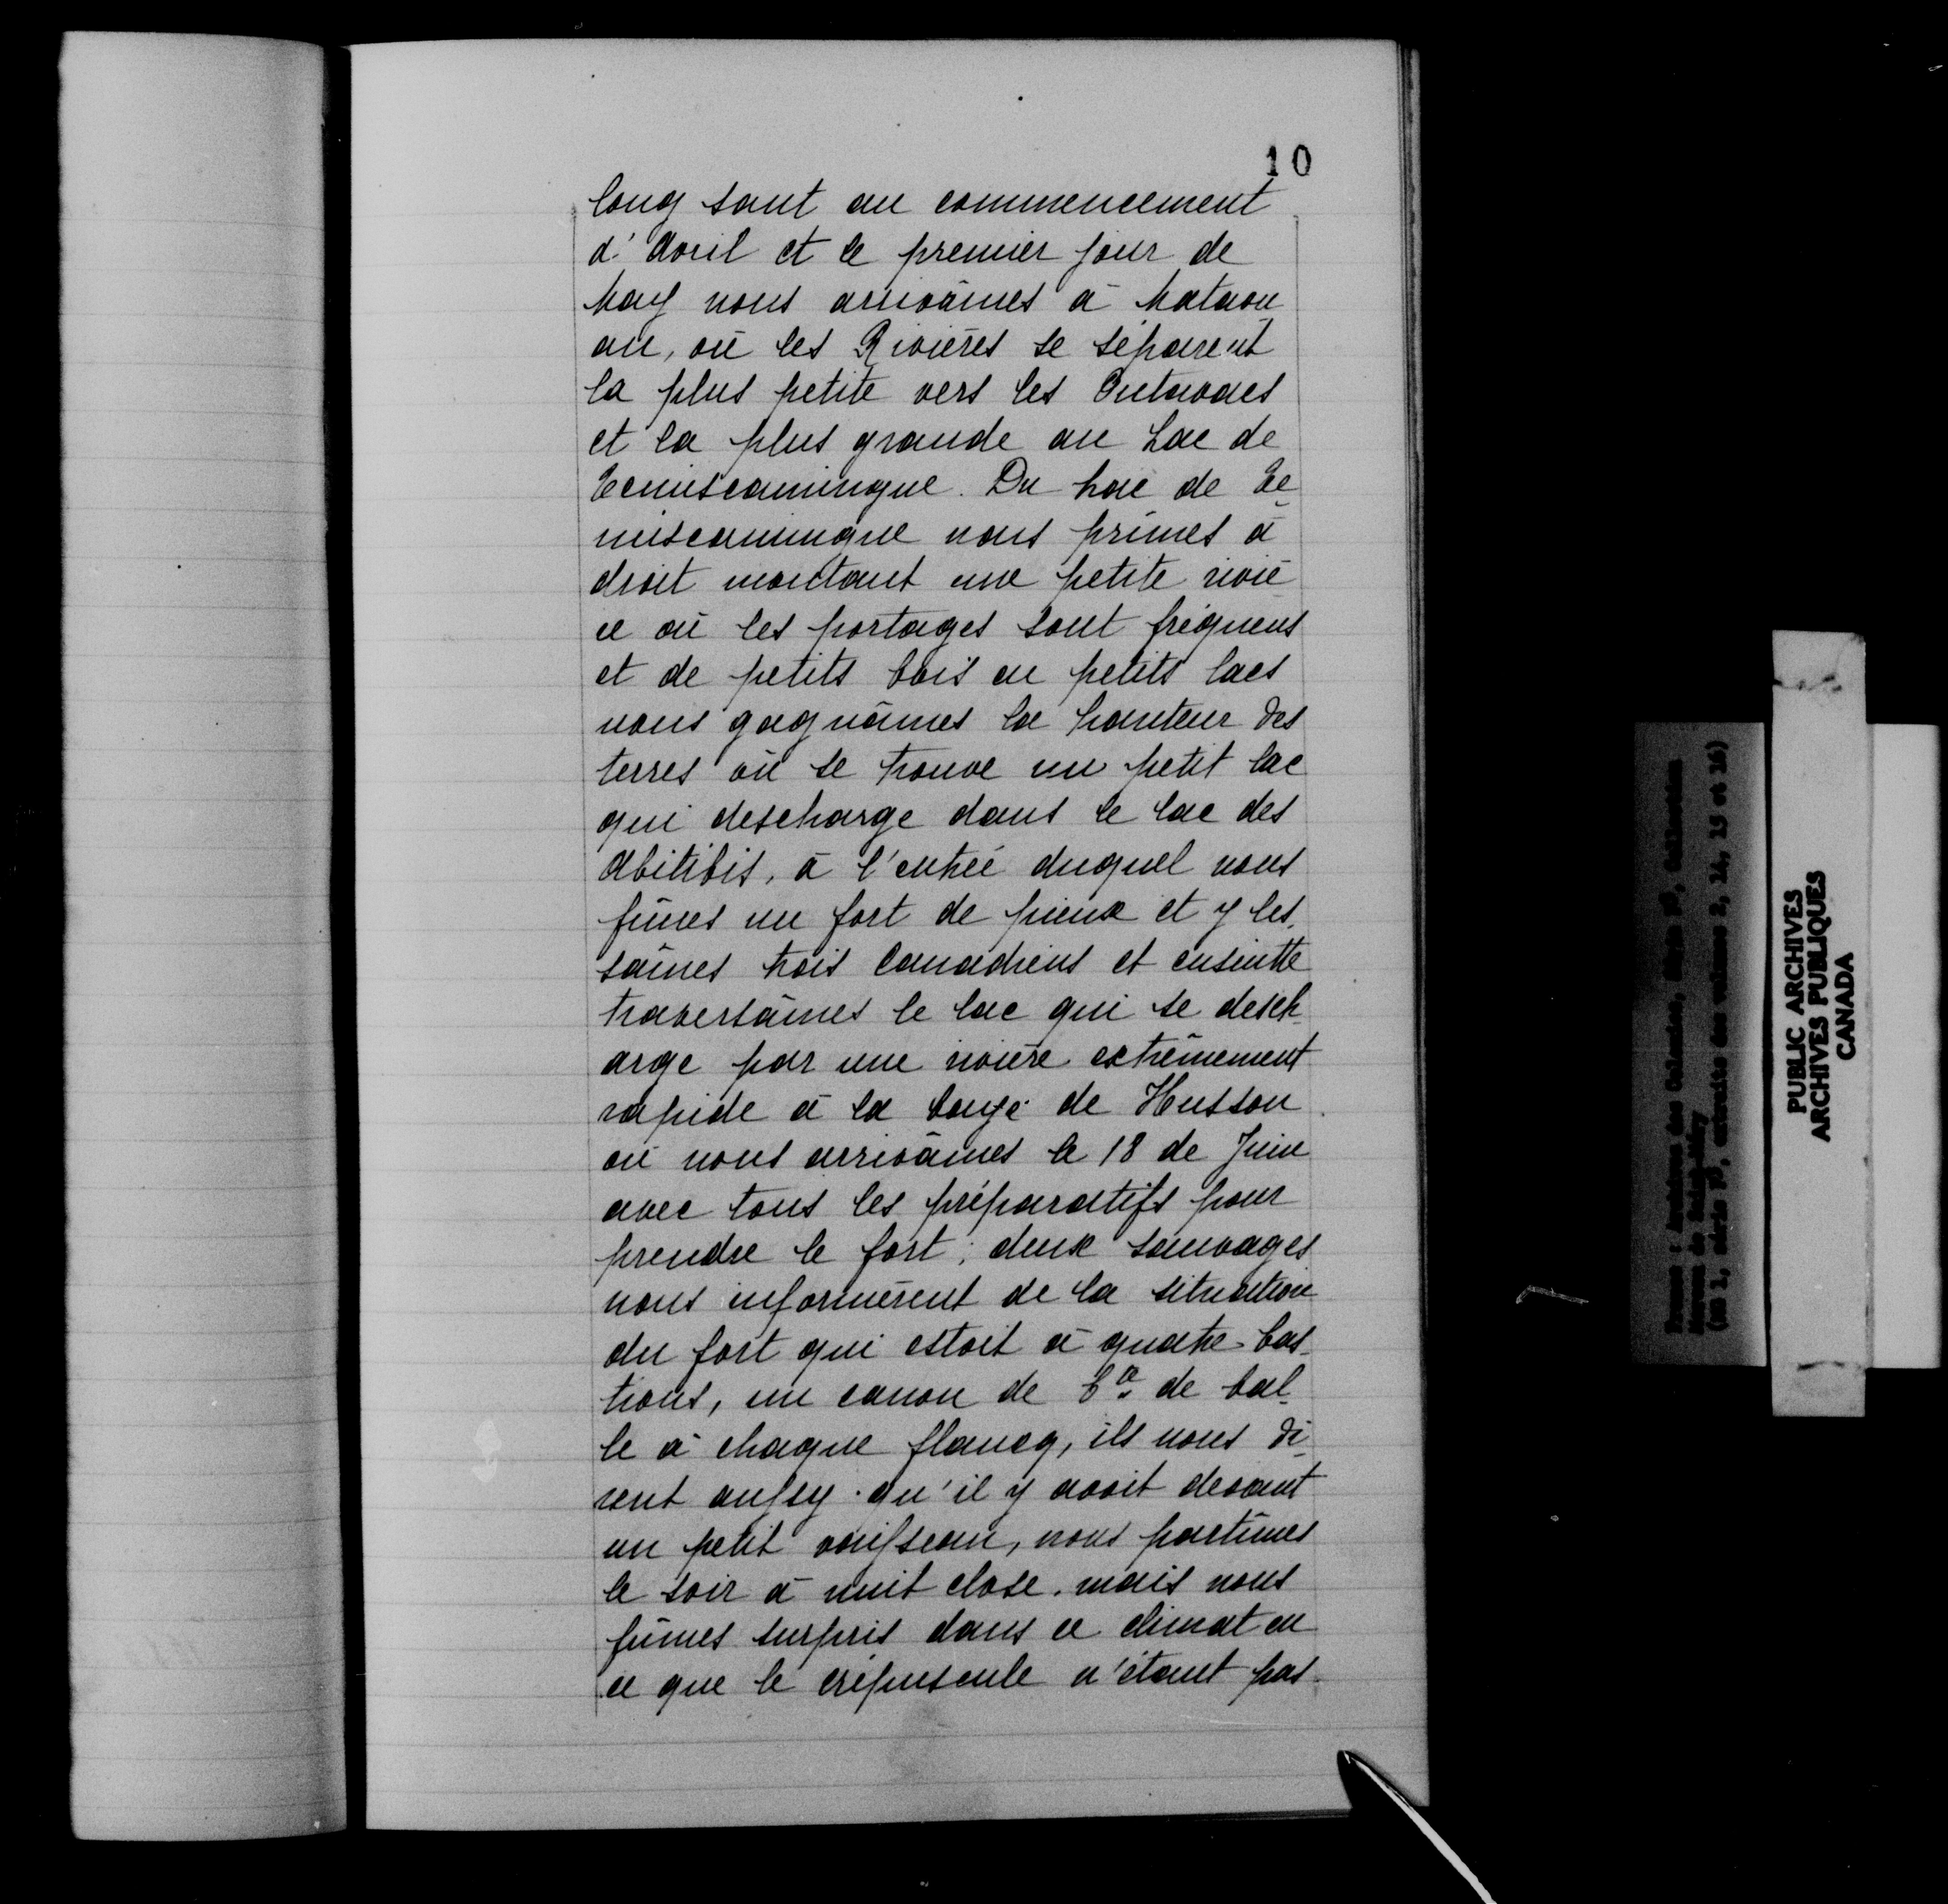 10
long saut au commencement
d'Avril et le premier jour de
May nous arrivâmes à Mataou
an, où les Rivières se séparent
la plus petite vers les Outavaes
et la plus grande au Lac de
Temiscamingue. Du Lac de Te
miscamingue nous prîmes à
droit montant une petite riviè
e où les portages sont fréquens
et de petits bois en petits lacs
nous gagnâmes la hauteur des
terres où se trouve un petit lac
qui descharge dans le lac des
Abitibis, à l'entrée duquel nous
fîmes un fort de pieux et y les
sâmes trois Canadiens et ensuitte
traversâmes le lac qui se desch
arge par une rivière extrêmement
rapide à la baye de Husson
où nous arrivâmes le 18 de Juin
avec tous les préparatifs pour
prendre le fort; deux sauvages
nous informèrent de la situation
du fort qui estoit à quatre bas
tions, un canon de de bal
le à chaque flancq, ils nous di
rent aussy qu'il y avoit devant
un petit vaisseau, nous partîmes
le soir à nuit close. mais nous
fûmes surpris dans ce climat en
ce que le crépuscule n'étant pas
PUBLIC ARCHIVES
ARCHIVES PUBLIQUES
CANADA